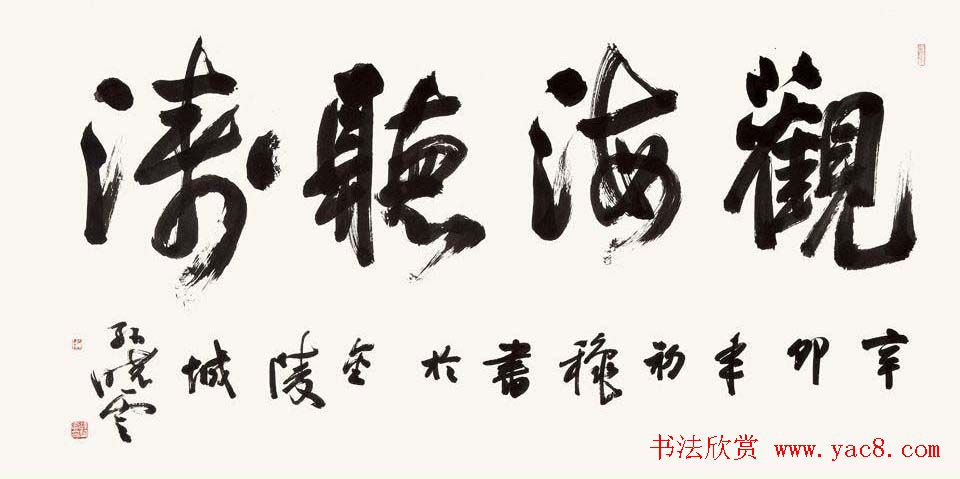 觀海聽濤
辛卯年初穐書於金陵城
孫曉雲
书法欣赏 www.yac8.com